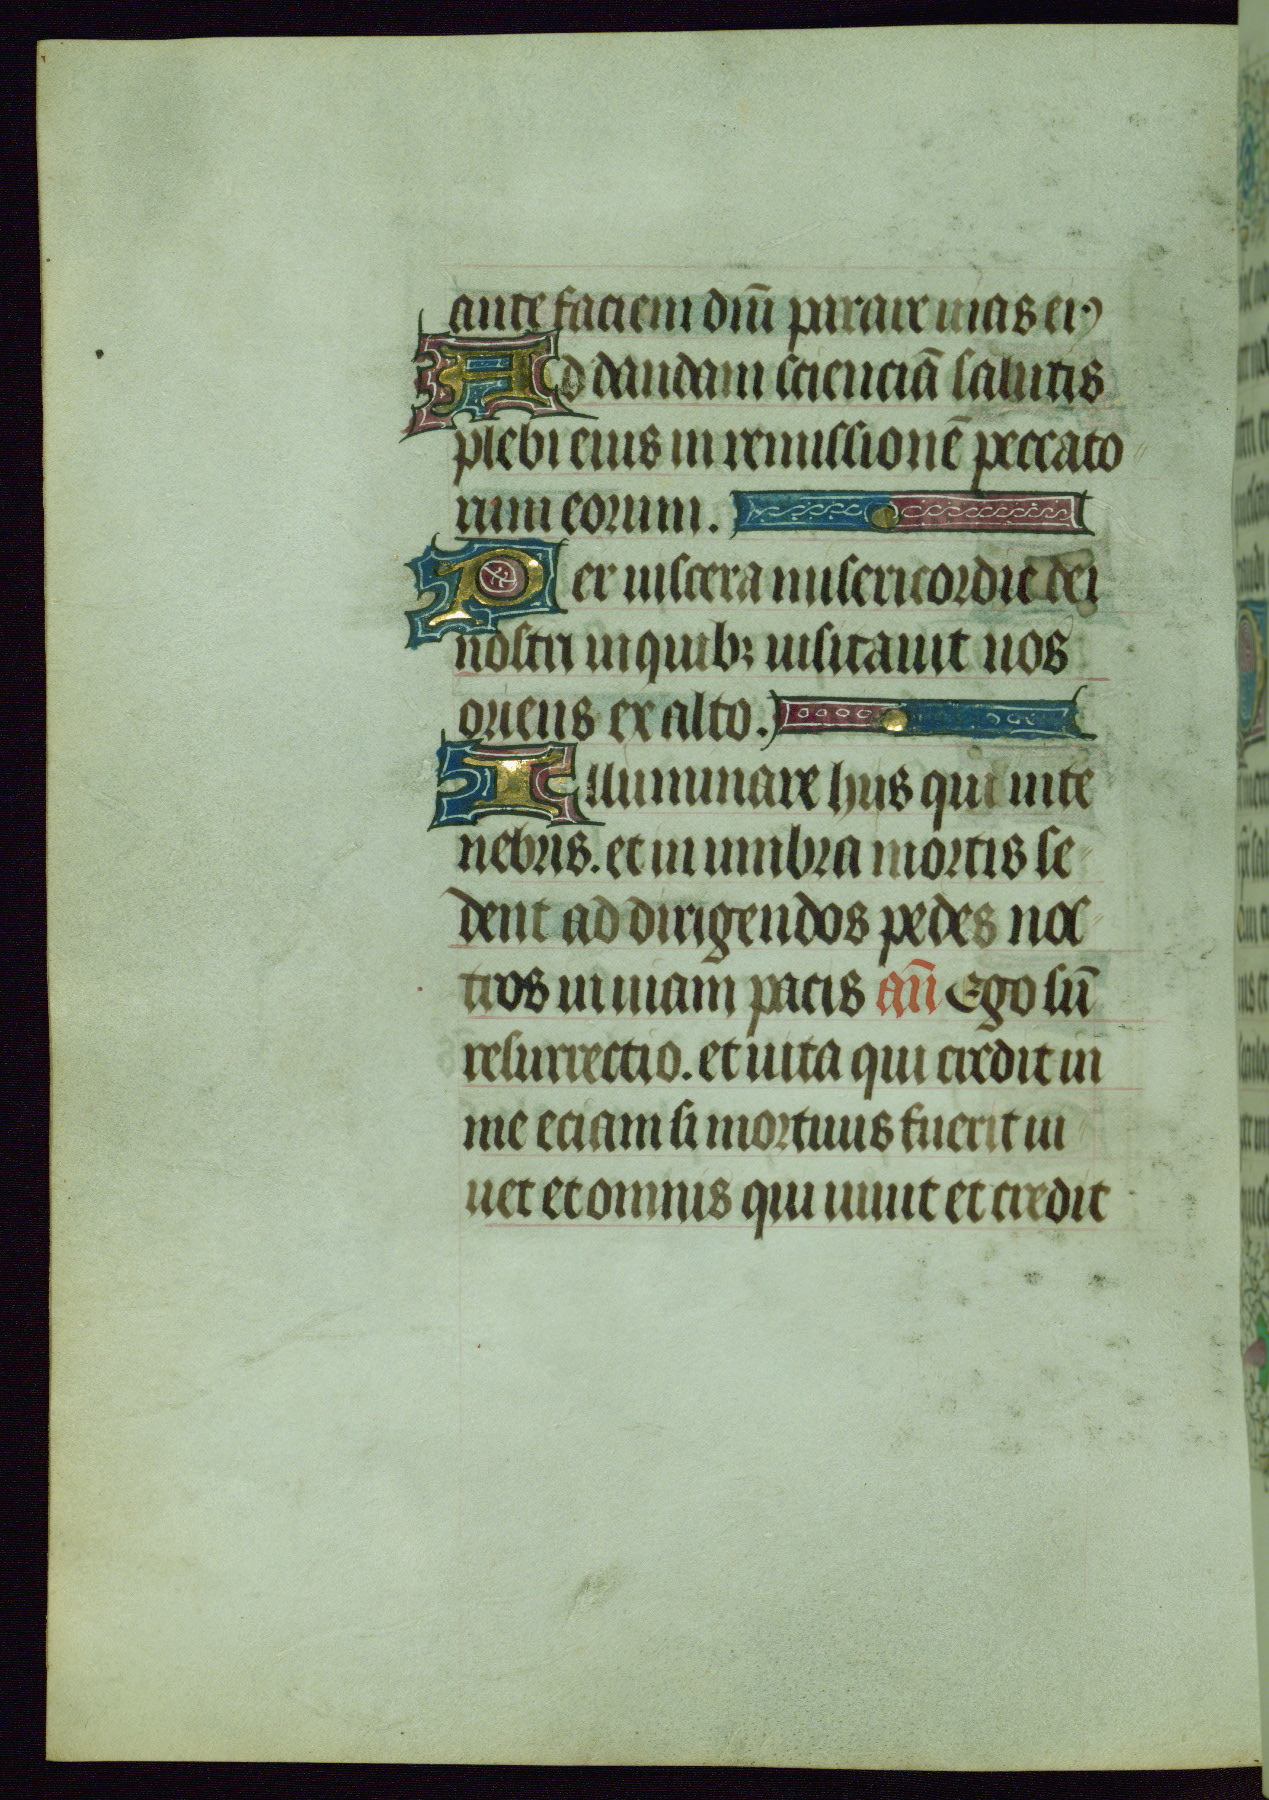 ante faciem dñi parare uias eiꝰ
Ad dandam scienciã salutis
plebi eius in remissionẽ peccato
rum eorum.
Per uiscera misericordie dei
nostri in quibꝫ uisitauit nos
oriens ex alto.
Illuminare hiis qui in te
nebris. et in umbra mortis se
dent ad dirigendos pedes nos
tros in uiam pacis añ Ego sũ
resurrectio. et uita qui credit in
me eciam si mortuus fuerit ui
uet et omnis qui uiuit et credit